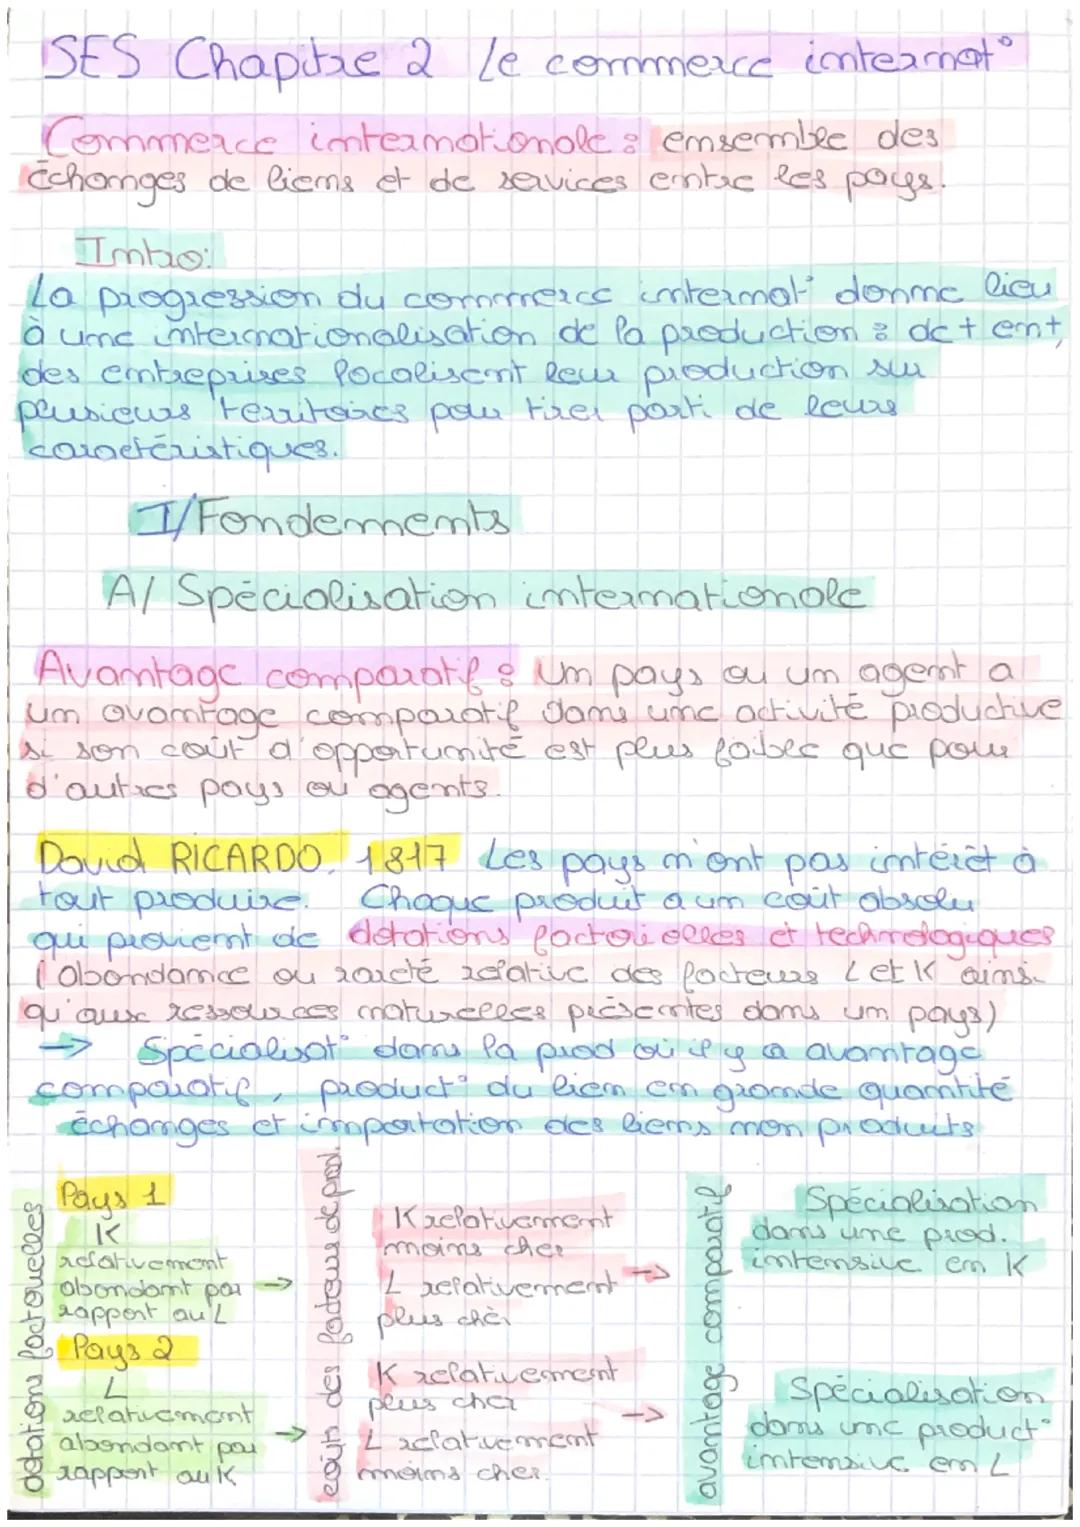 SES Chapitre 2 Le commerce internat°
Commerce internationale : ensemble des
Échanges de biens et de services entre les pays.
Intro:
La progression du commerce internat° donne lieu
à une internationalisation de la production : de + en +,
des entreprises localisent leur production sur
plusieurs territoires pour tirer parti de leurs
caractéristiques.
I/ Fondements
A/ Spécialisation internationale
Avantage comparatif : Un pays ou un agent a
un avantage comparatif dans une activité productive
si son coût d'opportunité est plus faible que pour
d'autres pays ou agents.
David RICARDO, 1817 Les pays n'ont pas intérêt à
tout produire. Chaque produit a un coût absolu
qui provient de dotations factorielles et technologiques
(abondance ou rareté relative des facteurs L et K ainsi
qu'aux ressources naturelles présentes dans un pays)
→ Spécialisat° dans la prod où il y a avantage
comparatif, product° du bien en grande quantité
échanges et importation des biens non produits
dotations factorielles
Pays 1
K
relativement
abondant par →
rapport au L
Pays 2
L
relativement
abondant par →
rapport au K
coût des facteurs de prod.
K relativement
moins cher
L relativement →
plus chèr
K relativement
plus cher →
L relativement
moins cher.
avantage comparatif
Spécialisation
dans une prod.
intensive en K
Spécialisation
dans une product°
intensive en L